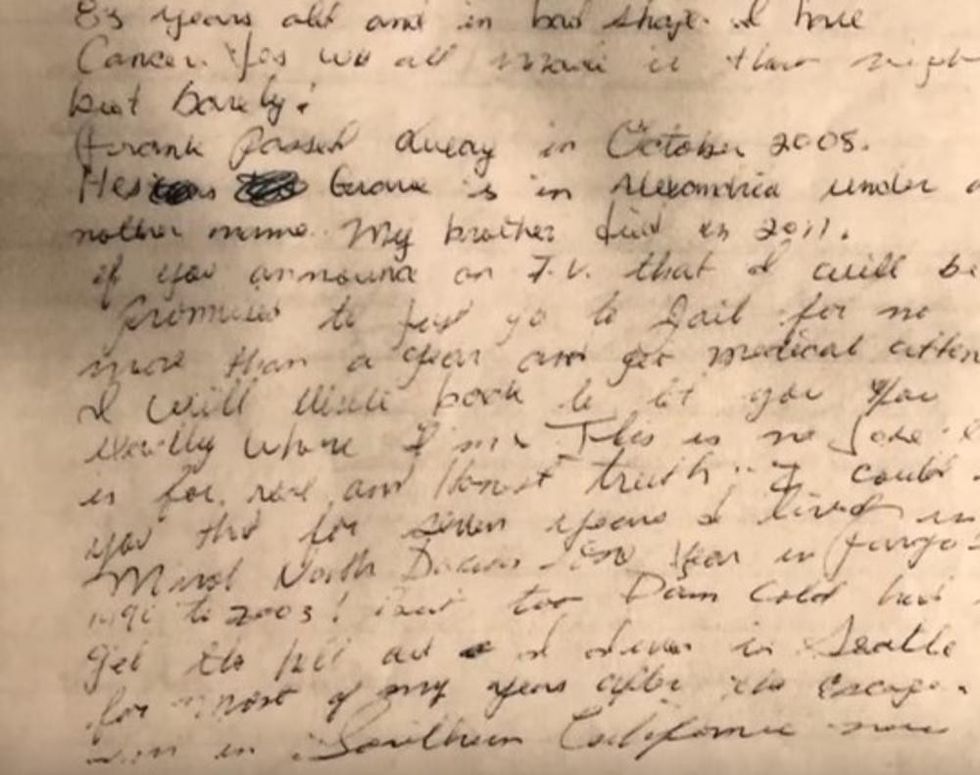 83 years old and in bad shape. I have
Cancer. Yes we all made it that nigh
but barely!
Frank passed away in October 2008.
Hes Grave is in Alexandria under a
nother name. My brother died in 2011.
if you announce on T.V. that I will be
promised to first go to Jail for no
more than a year and get medical atten
I will write back to let you know
exactly where I am This is no Joke
is for real and Honest truth I could
you that for seven years I lived in
Minot North Dakota year in fargo
to 2003! but too Dam Cold had
get the hell out I in Seattle
for most of my years after the escape.
in Southern California now